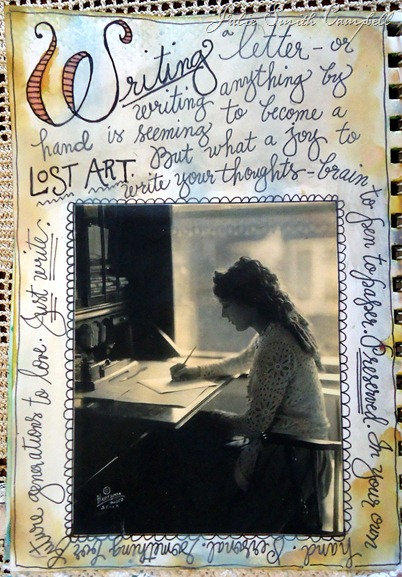 Julie Smith Campbell
Writing a letter - or
writing anything by
hand is seeming to become a
LOST ART. But what a joy to
write your thoughts - brain to pen to paper. Preserved. In your own
hand. Personal. Something
ture generations to love. Just write.